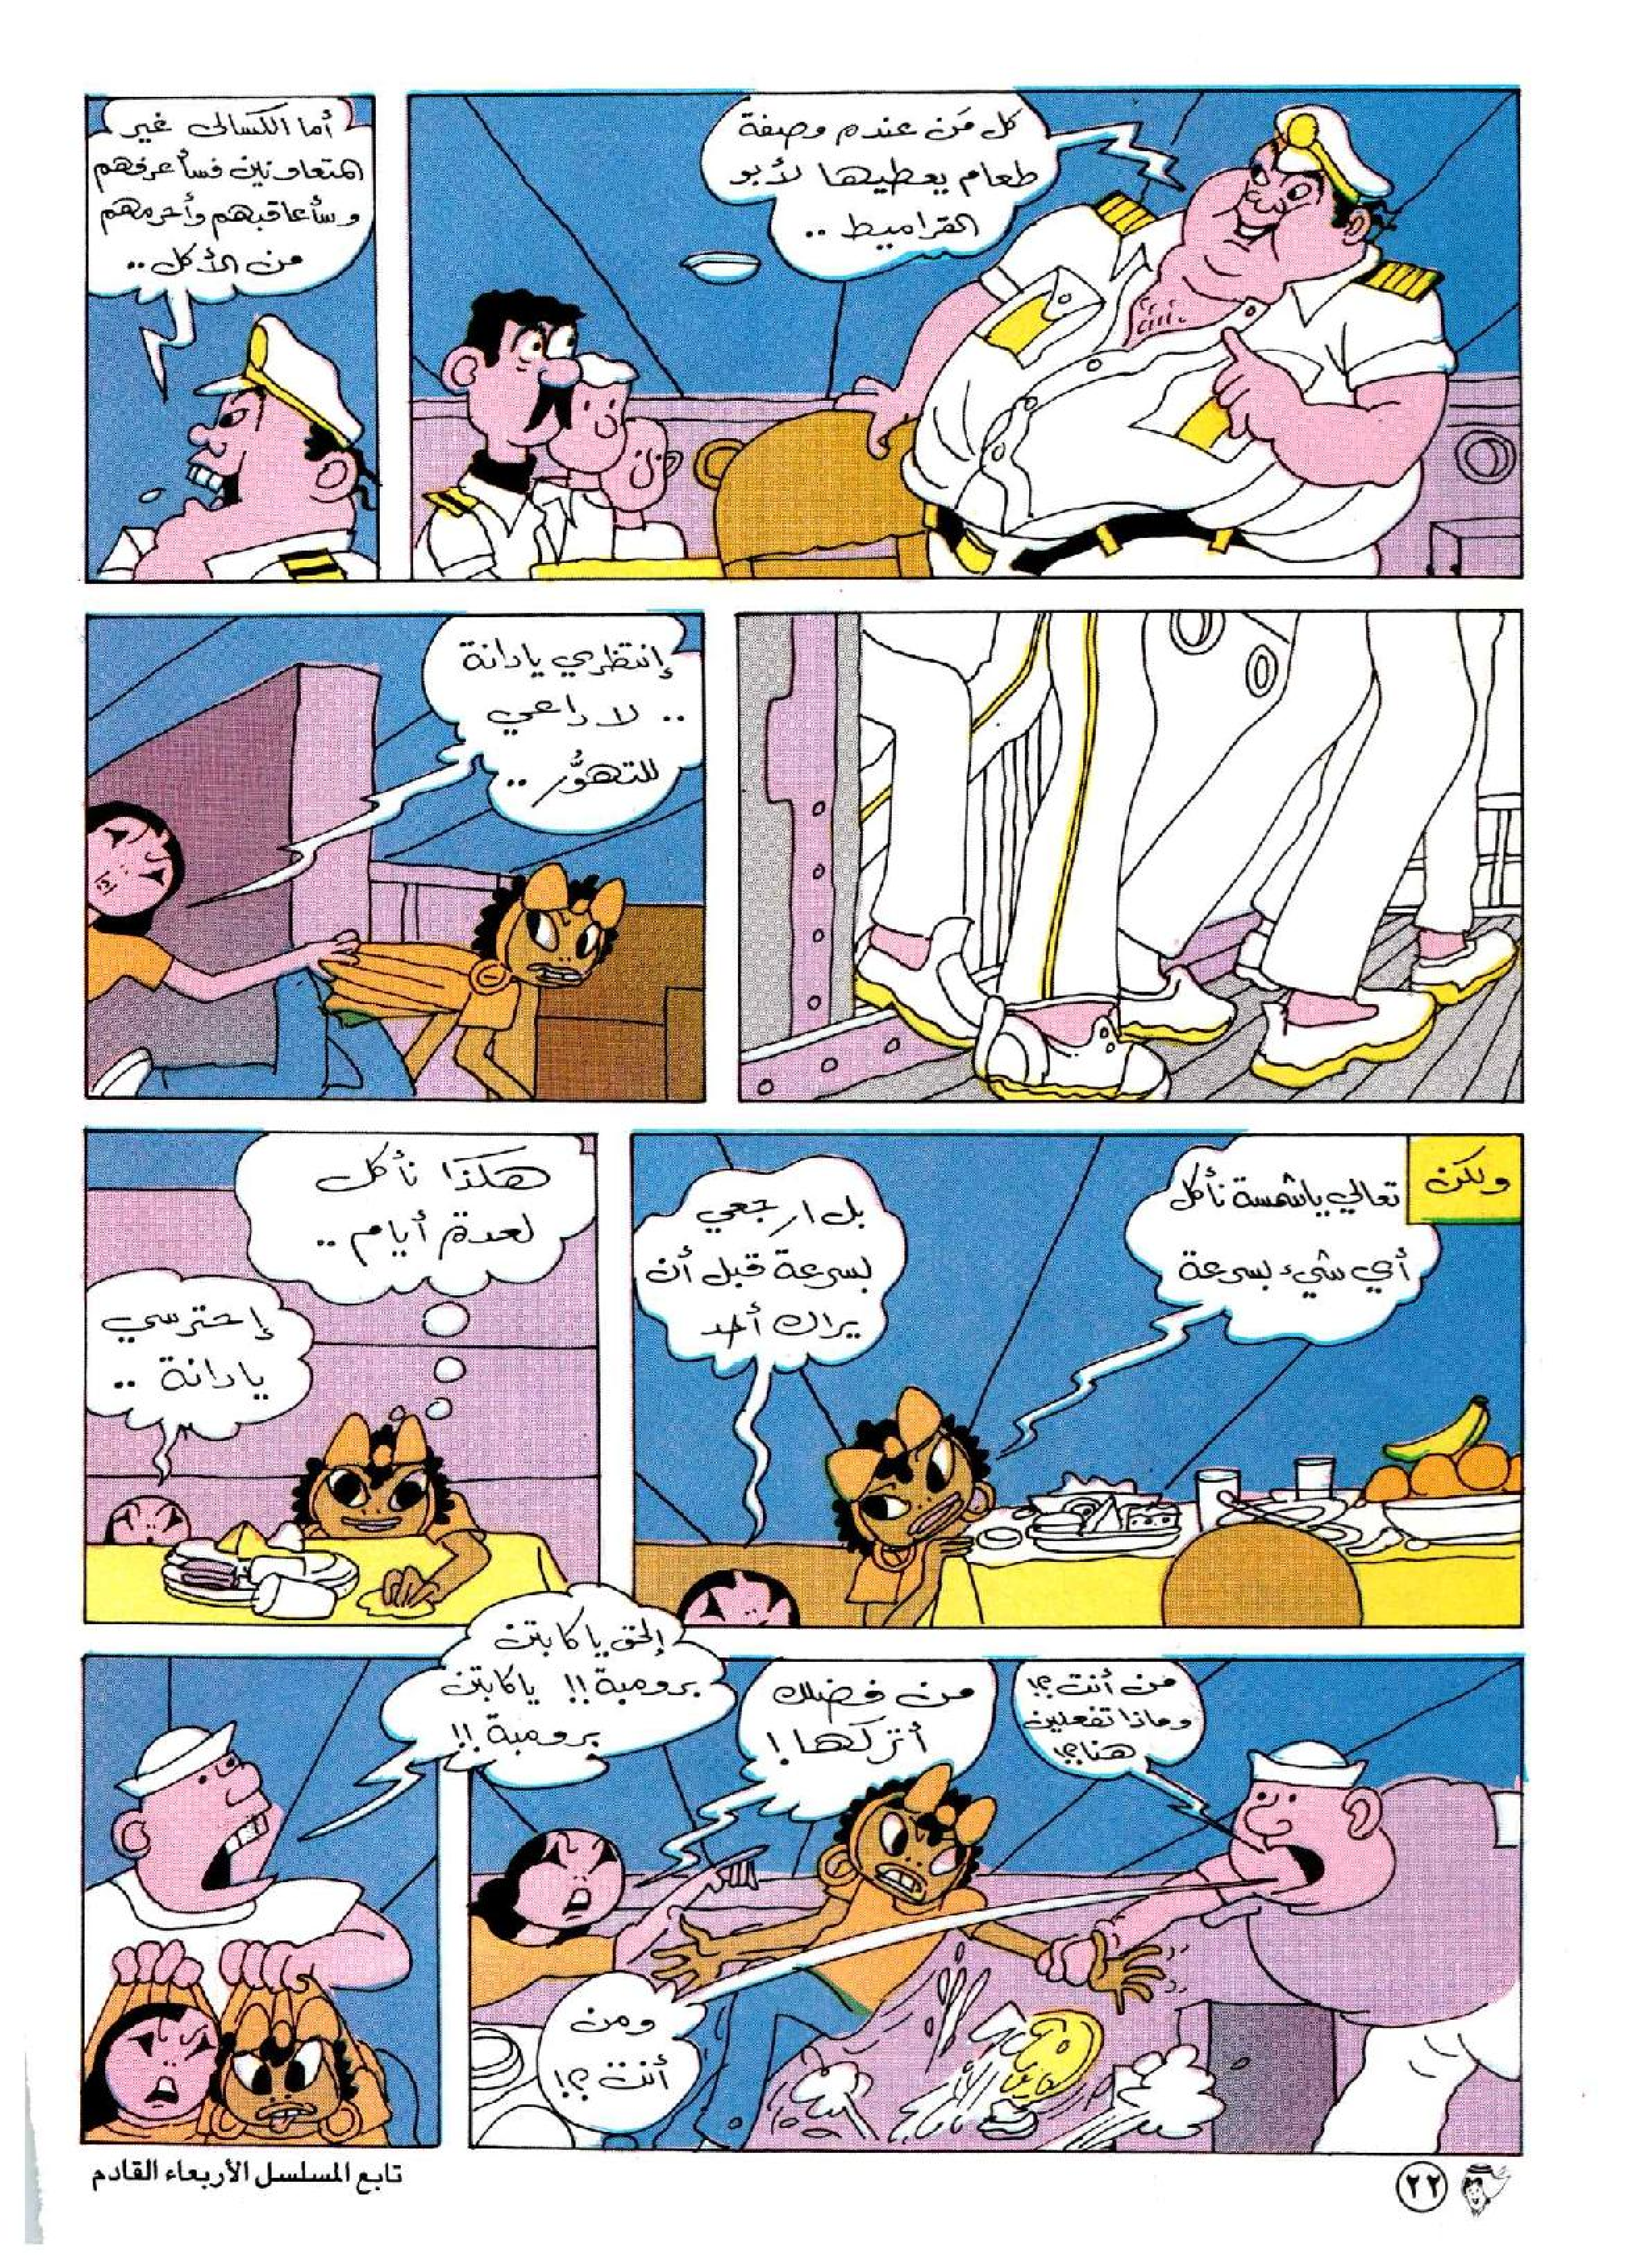 كل مَن عنده وصفة
طعام يعطيها لأبو
القراميط ..
أما الكسالى غير
المتعاونين فسأعرفهم
وسأعاقبهم وأحرمهم
من الأكل ..
إنتظري يادانة
.. لا داعي
للتهوُّر ..
ولكن
تعالي ياشمسة نأكل
أي شيء بسرعة
بل ارجعي
بسرعة قبل أن
يراك أحد
هكذا نأكل
لعدة أيام ..
إحترسي
يادانة ..
من أنت ؟!
وماذا تفعلين
هنا ؟!
من فضلك
أتركها !
ومن
أنت ؟!
إلحق يا كابتن
برومبة !! ياكابتن
برومبة !!
تابع المسلسل الأربعاء القادم
٢٢